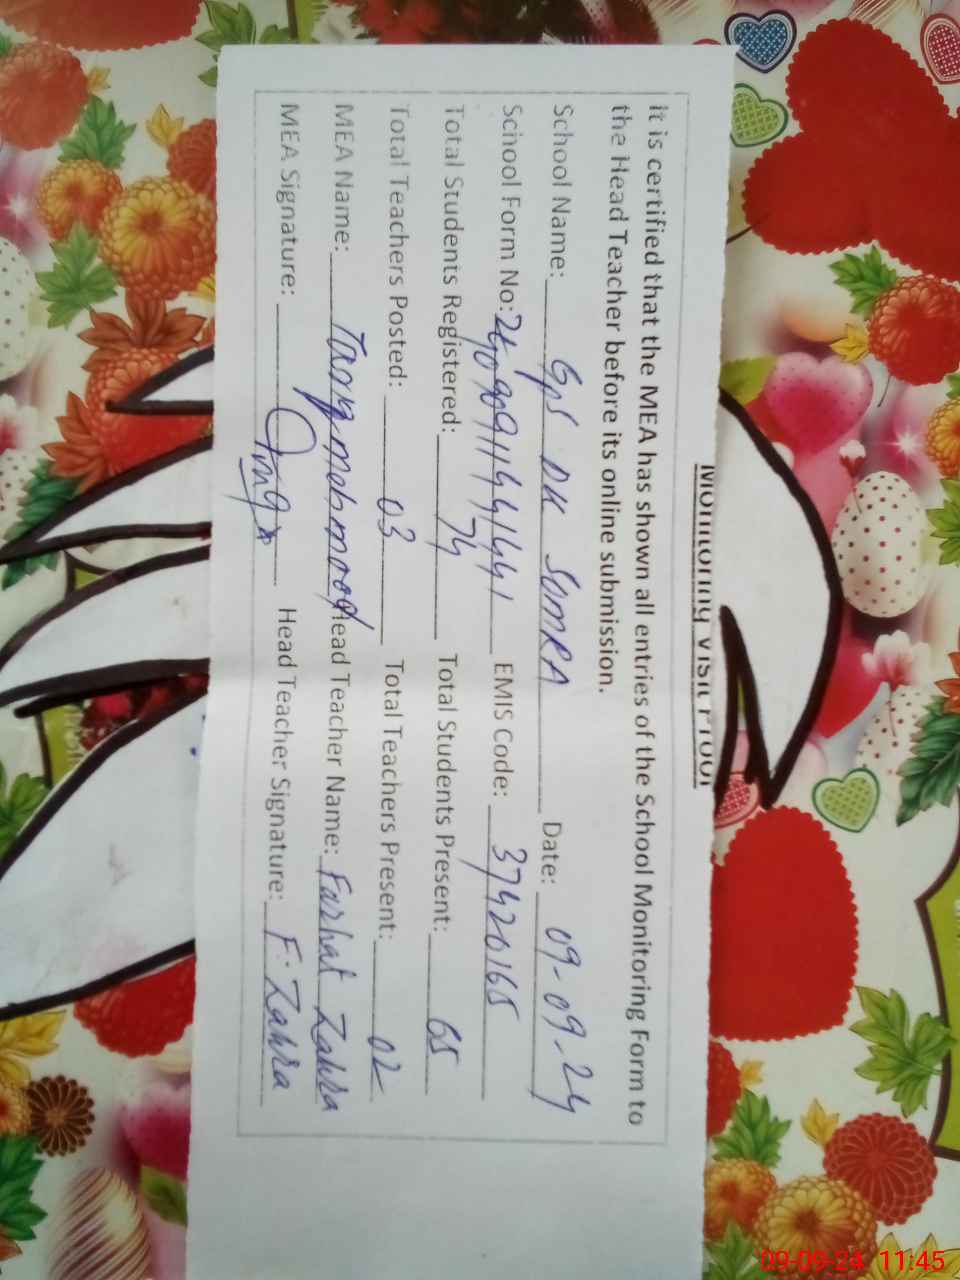 Monitoring Visit Proof
It is certified that the MEA has shown all entries of the School Monitoring Form to
the Head Teacher before its online submission.
School Name: GPS DK SUMRA Date: 09-09-24
School Form No: EMIS Code: 37420165
Total Students Registered: 74 Total Students Present: 65
Total Teachers Posted: 03 Total Teachers Present: 02
MEA Name: Tariq mehmood Head Teacher Name: Farhat Zahra
MEA Signature: Head Teacher Signature: F. Zahra
09-09-24 11:45